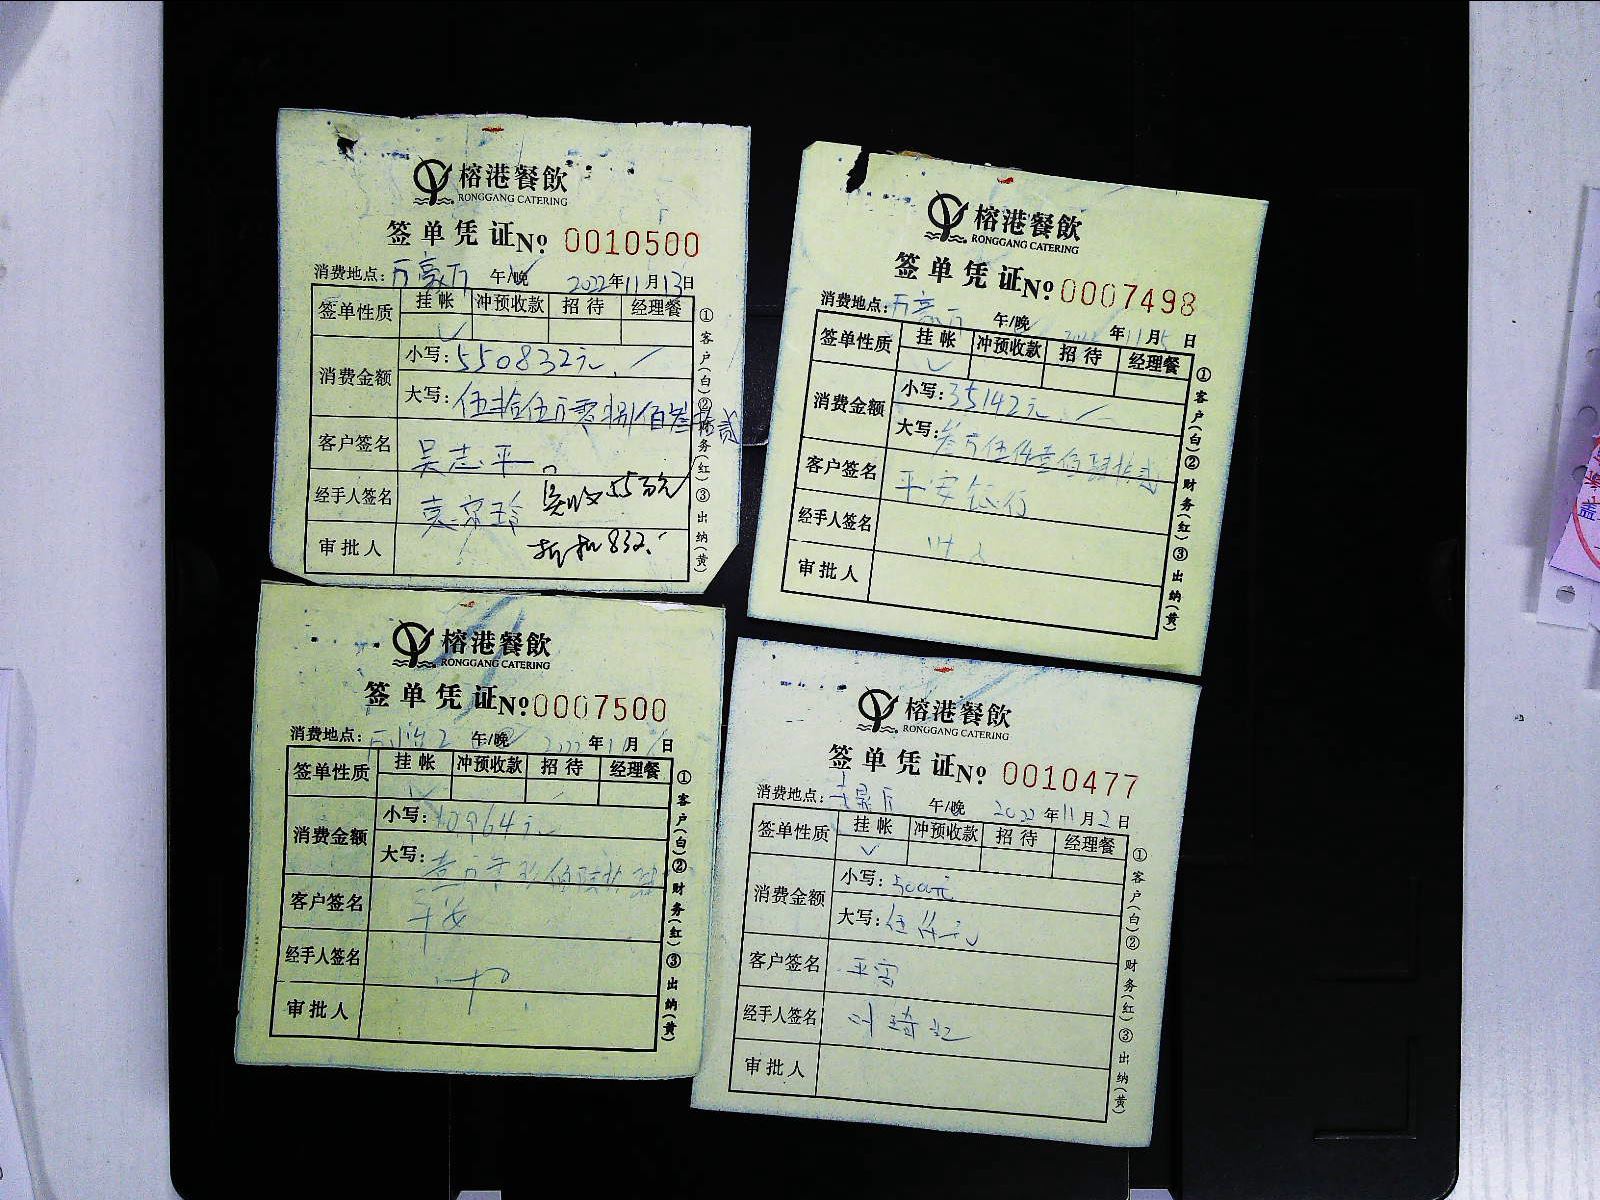 榕港餐飲
RONGGANG CATERING
签单凭证 No. 0010500
消费地点：万豪厅 午/晚 2022年11月13日
签单性质 挂帐 冲预收款 招待 经理餐
✓
消费金额
小写：550832元
大写：伍拾伍万零捌佰叁拾贰
客户签名 吴志平
经手人签名 实收55万元
审批人 折扣832.
①客户(白)②财务(红)③出纳(黄)
榕港餐飲
RONGGANG CATERING
签单凭证 No. 0007498
消费地点：万豪厅 午/晚 年11月5日
签单性质 挂帐 冲预收款 招待 经理餐
✓
消费金额
小写：35142元
大写：叁万伍仟壹佰肆拾贰
客户签名 平安银行
经手人签名
审批人
①客户(白)②财务(红)③出纳(黄)
榕港餐飲
RONGGANG CATERING
签单凭证 No. 0007500
消费地点： 午/晚 2022年 月 日
签单性质 挂帐 冲预收款 招待 经理餐
消费金额
小写：10964元
大写：壹万零玖佰陆拾肆
客户签名 平安
经手人签名 叶
审批人
①客户(白)②财务(红)③出纳(黄)
榕港餐飲
RONGGANG CATERING
签单凭证 No. 0010477
消费地点： 午/晚 2022年11月2日
签单性质 挂帐 冲预收款 招待 经理餐
✓
消费金额
小写：5000元
大写：伍仟元
客户签名 平安
经手人签名 叶琦
审批人
①客户(白)②财务(红)③出纳(黄)